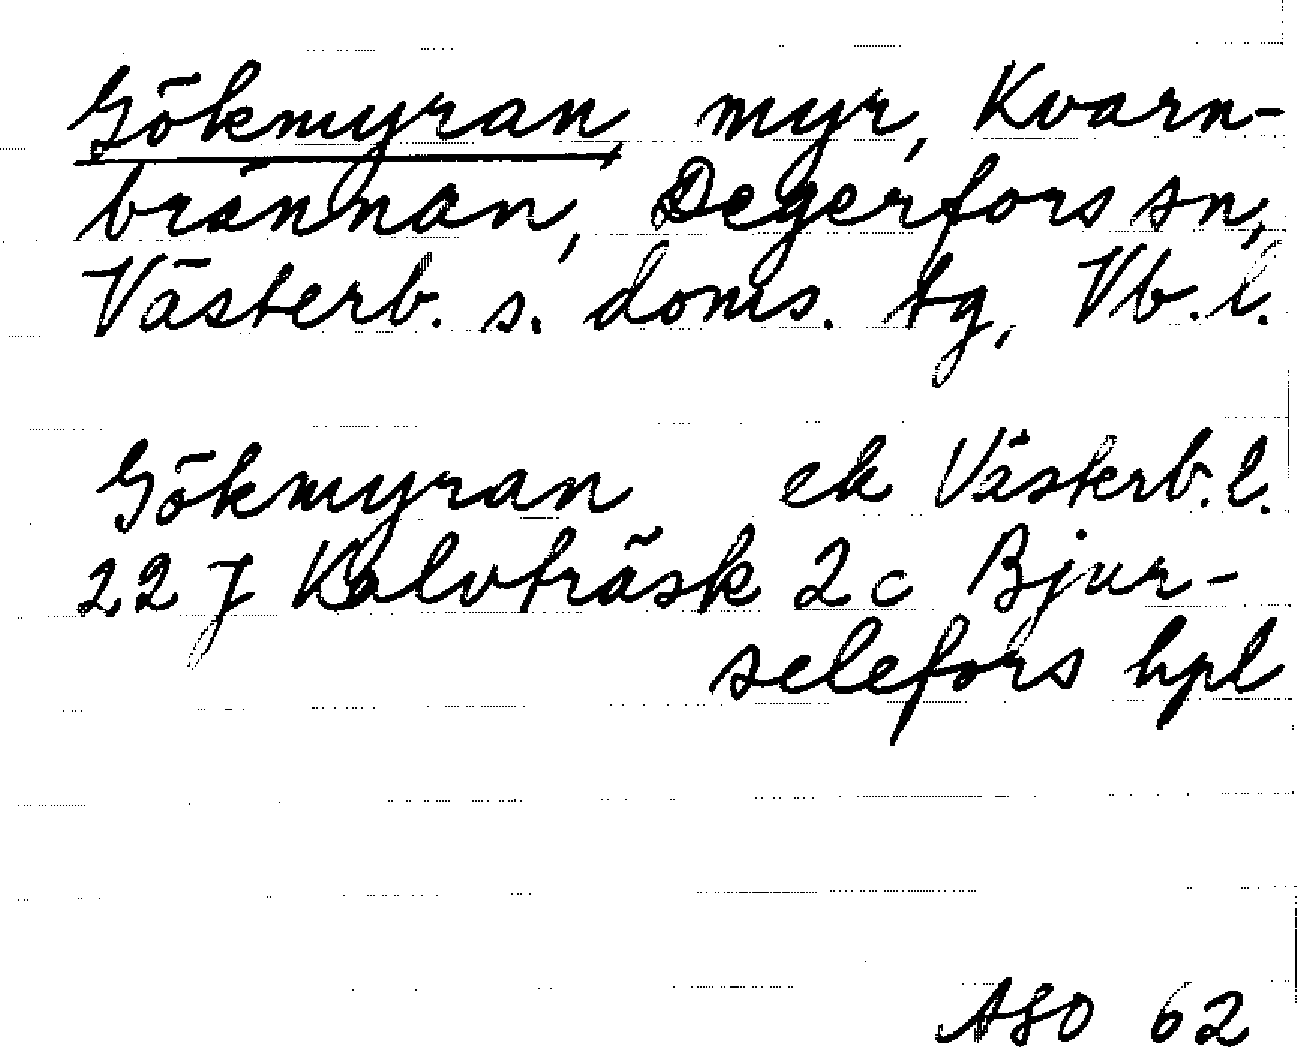 Gökmyran, myr, Kvarn-
brännan, Degerfors sn,
Västerb. s. doms. tg, Vb.l.
Gökmyran ek Västerb.l.
22 J Kalvträsk 2c Bjur-
selefors hpl
ASO 62